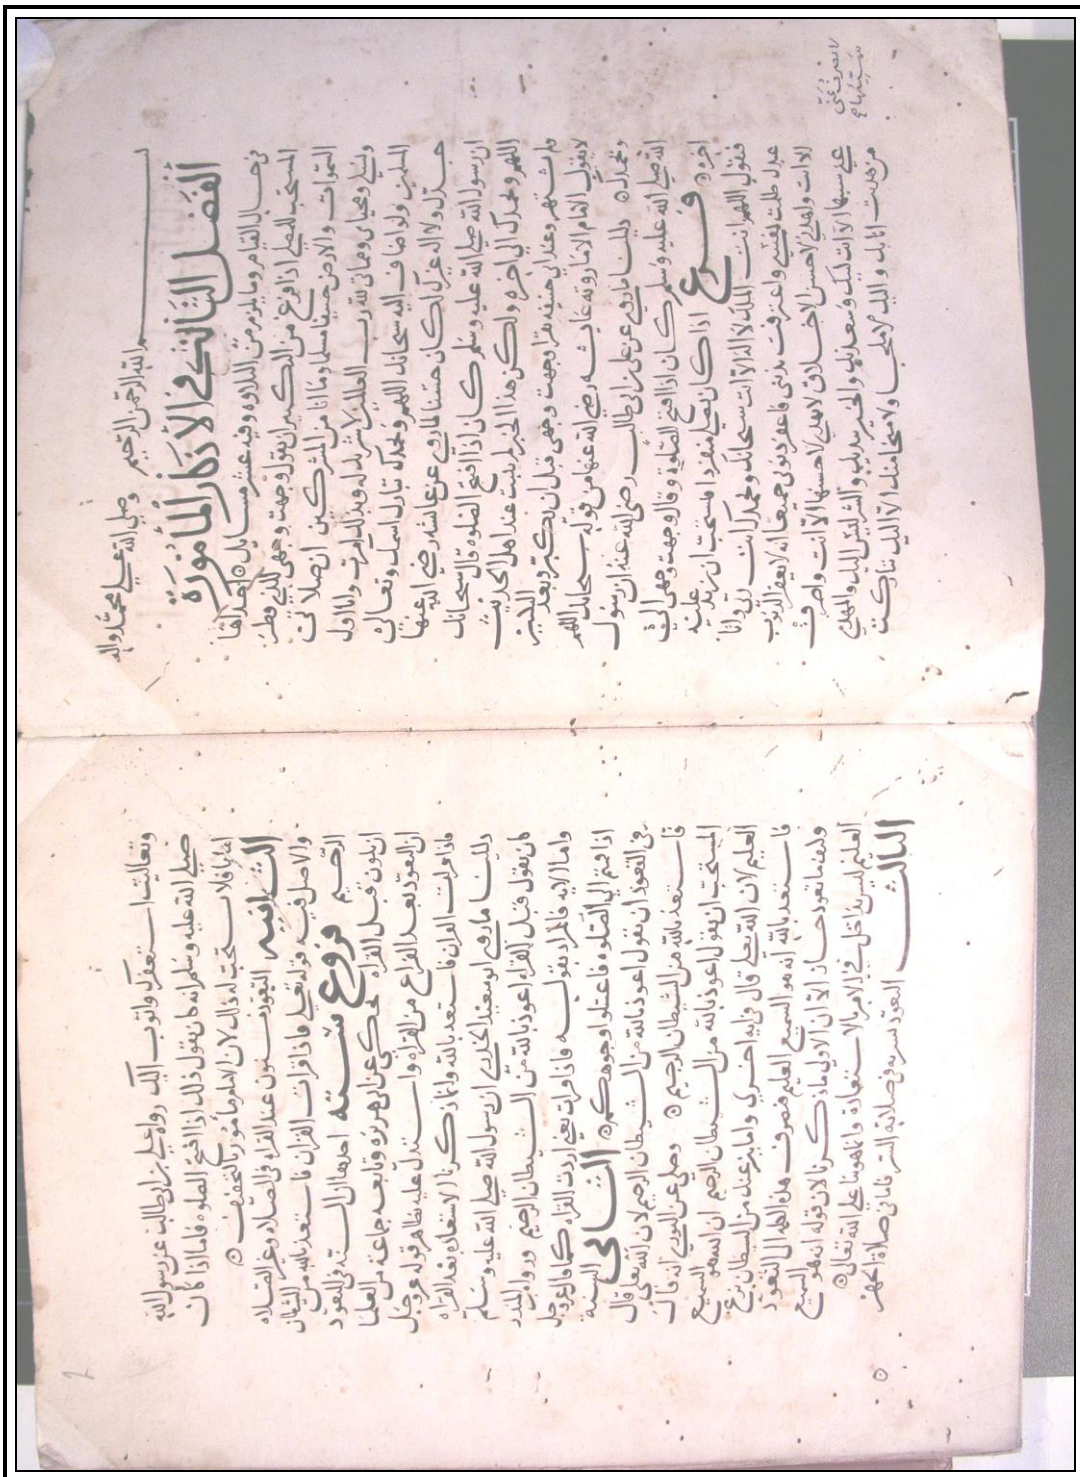 بسم الله الرحمن الرحيم وصلى الله على محمد واله
الفصل الثالث في الأذكار المأمورة
في حال القيام وما يلزم من التلاوه وفيه عشر مسايل احداها
المستحب للمصلي اذا فرغ من التكبير ان يقول وجهت وجهي للذي فطر
السموات والارض حنيفا مسلما وما انا من المشركين ان صلاتي
ونسكي ومحياي ومماتي لله رب العالمين لا شريك له وبذلك امرت وانا اول
المسلمين ولو اضاف اليه سبحانك اللهم وبحمدك تبارك اسمك وتعالى
جدك ولا اله غيرك لكان حسنا لما روي عن عائشه رضي الله عنها
ان رسول الله صلى الله عليه وسلم كان اذا افتتح الصلوه قال سبحانك
اللهم وبحمدك الى اخره ولكن هذا الخبر لم يثبت عند اهل الحديث
ولم يشتهر وعند ابي حنيفه يقرا وجهت وجهي قبل ان يكبر وبعد التكبير
لا يقول الامام الا ما روته عائشه رضي الله عنها من قوله سبحانك اللهم
وبحمدك ودليلنا ما روي عن علي بن ابي طالب رضي الله عنه ان رسول
الله صلى الله عليه وسلم كان اذا افتتح الصلوة وقال وجهت وجهي الى
اخره فرع اذا كان يصلي منفردا فالمستحب ان يزيد عليه
فيقول اللهم انت الملك لا اله الا انت سبحانك وبحمدك انت ربي وانا
عبدك ظلمت نفسي واعترفت بذنبي فاغفر ذنوبي جميعا انه لا يغفر الذنوب
الا انت واهدني لاحسن الاخلاق لا يهدي لاحسنها الا انت واصرف
عني سيئها الا انت لبيك وسعديك والخير بيديك والشر ليس اليك والمهدي
من هديت انا بك واليك لا ملجا ولا منجا منك الا اليك تباركت
لا يصرف عني
سيئها صح
وتعاليت استغفرك واتوب اليك رواه علي بن ابي طالب عن رسول الله
صلى الله عليه وسلم انه كان يقول ذلك اذا افتتح الصلوه فاما اذا كان
اماما فلا نستحب له ذلك لان الامام مأمور بالتخفيف
الثانيه التعوذ مسنون عند القراه في الصلاه وغير الصلاه
والاصل فيه قوله تعالى فاذا قرات القران فاستعذ بالله من الشيطان
الرجيم فروع سته احدها ان السنه في التعوذ
ان يكون قبل القراه وحكي عن ابي هريره وتابعه جماعة من العلما
ان التعوذ بعد الفراغ من القراه واستدل عليه بظاهر قوله عز وجل
فاذا قرات القران فاستعذ بالله وانما ذكر الاستعاذه بعد القراه
ودليلنا ما روى ابو سعيد الخدري ان رسول الله صلى الله عليه وسلم
كان يقول قبل القراه اعوذ بالله من الشيطان الرجيم ورواه ابن المنذر
واما الايه فالمراد بقوله فاذا قرات يعني اردت القراه كما قال عز وجل
اذا قمتم الى الصلوه فاغسلوا وجوهكم الثاني السنة
في التعوذ ان يقول اعوذ بالله من الشيطان الرجيم لان الله تعالى قال
فاستعذ بالله من الشيطان الرجيم وحكي عن الثوري انه قال
المستحب ان يقول اعوذ بالله من الشيطان الرجيم ان الله هو السميع
العليم لان الله تعالى قال في ايه اخرى واما ينزغنك من الشيطان نزغ
فاستعذ بالله انه هو السميع العليم فصرف هذه اللفظه الى التعوذ
وكيف ما تعوذ جاز الا ان الاولى ما ذكرنا لان قوله انه هو السميع
العليم ليس بداخل في الامر بالاستعاذة وانما هو ثنا على الله تعالى
الثالث التعوذ يسر به في صلاة السر فاما في صلاة الجهر